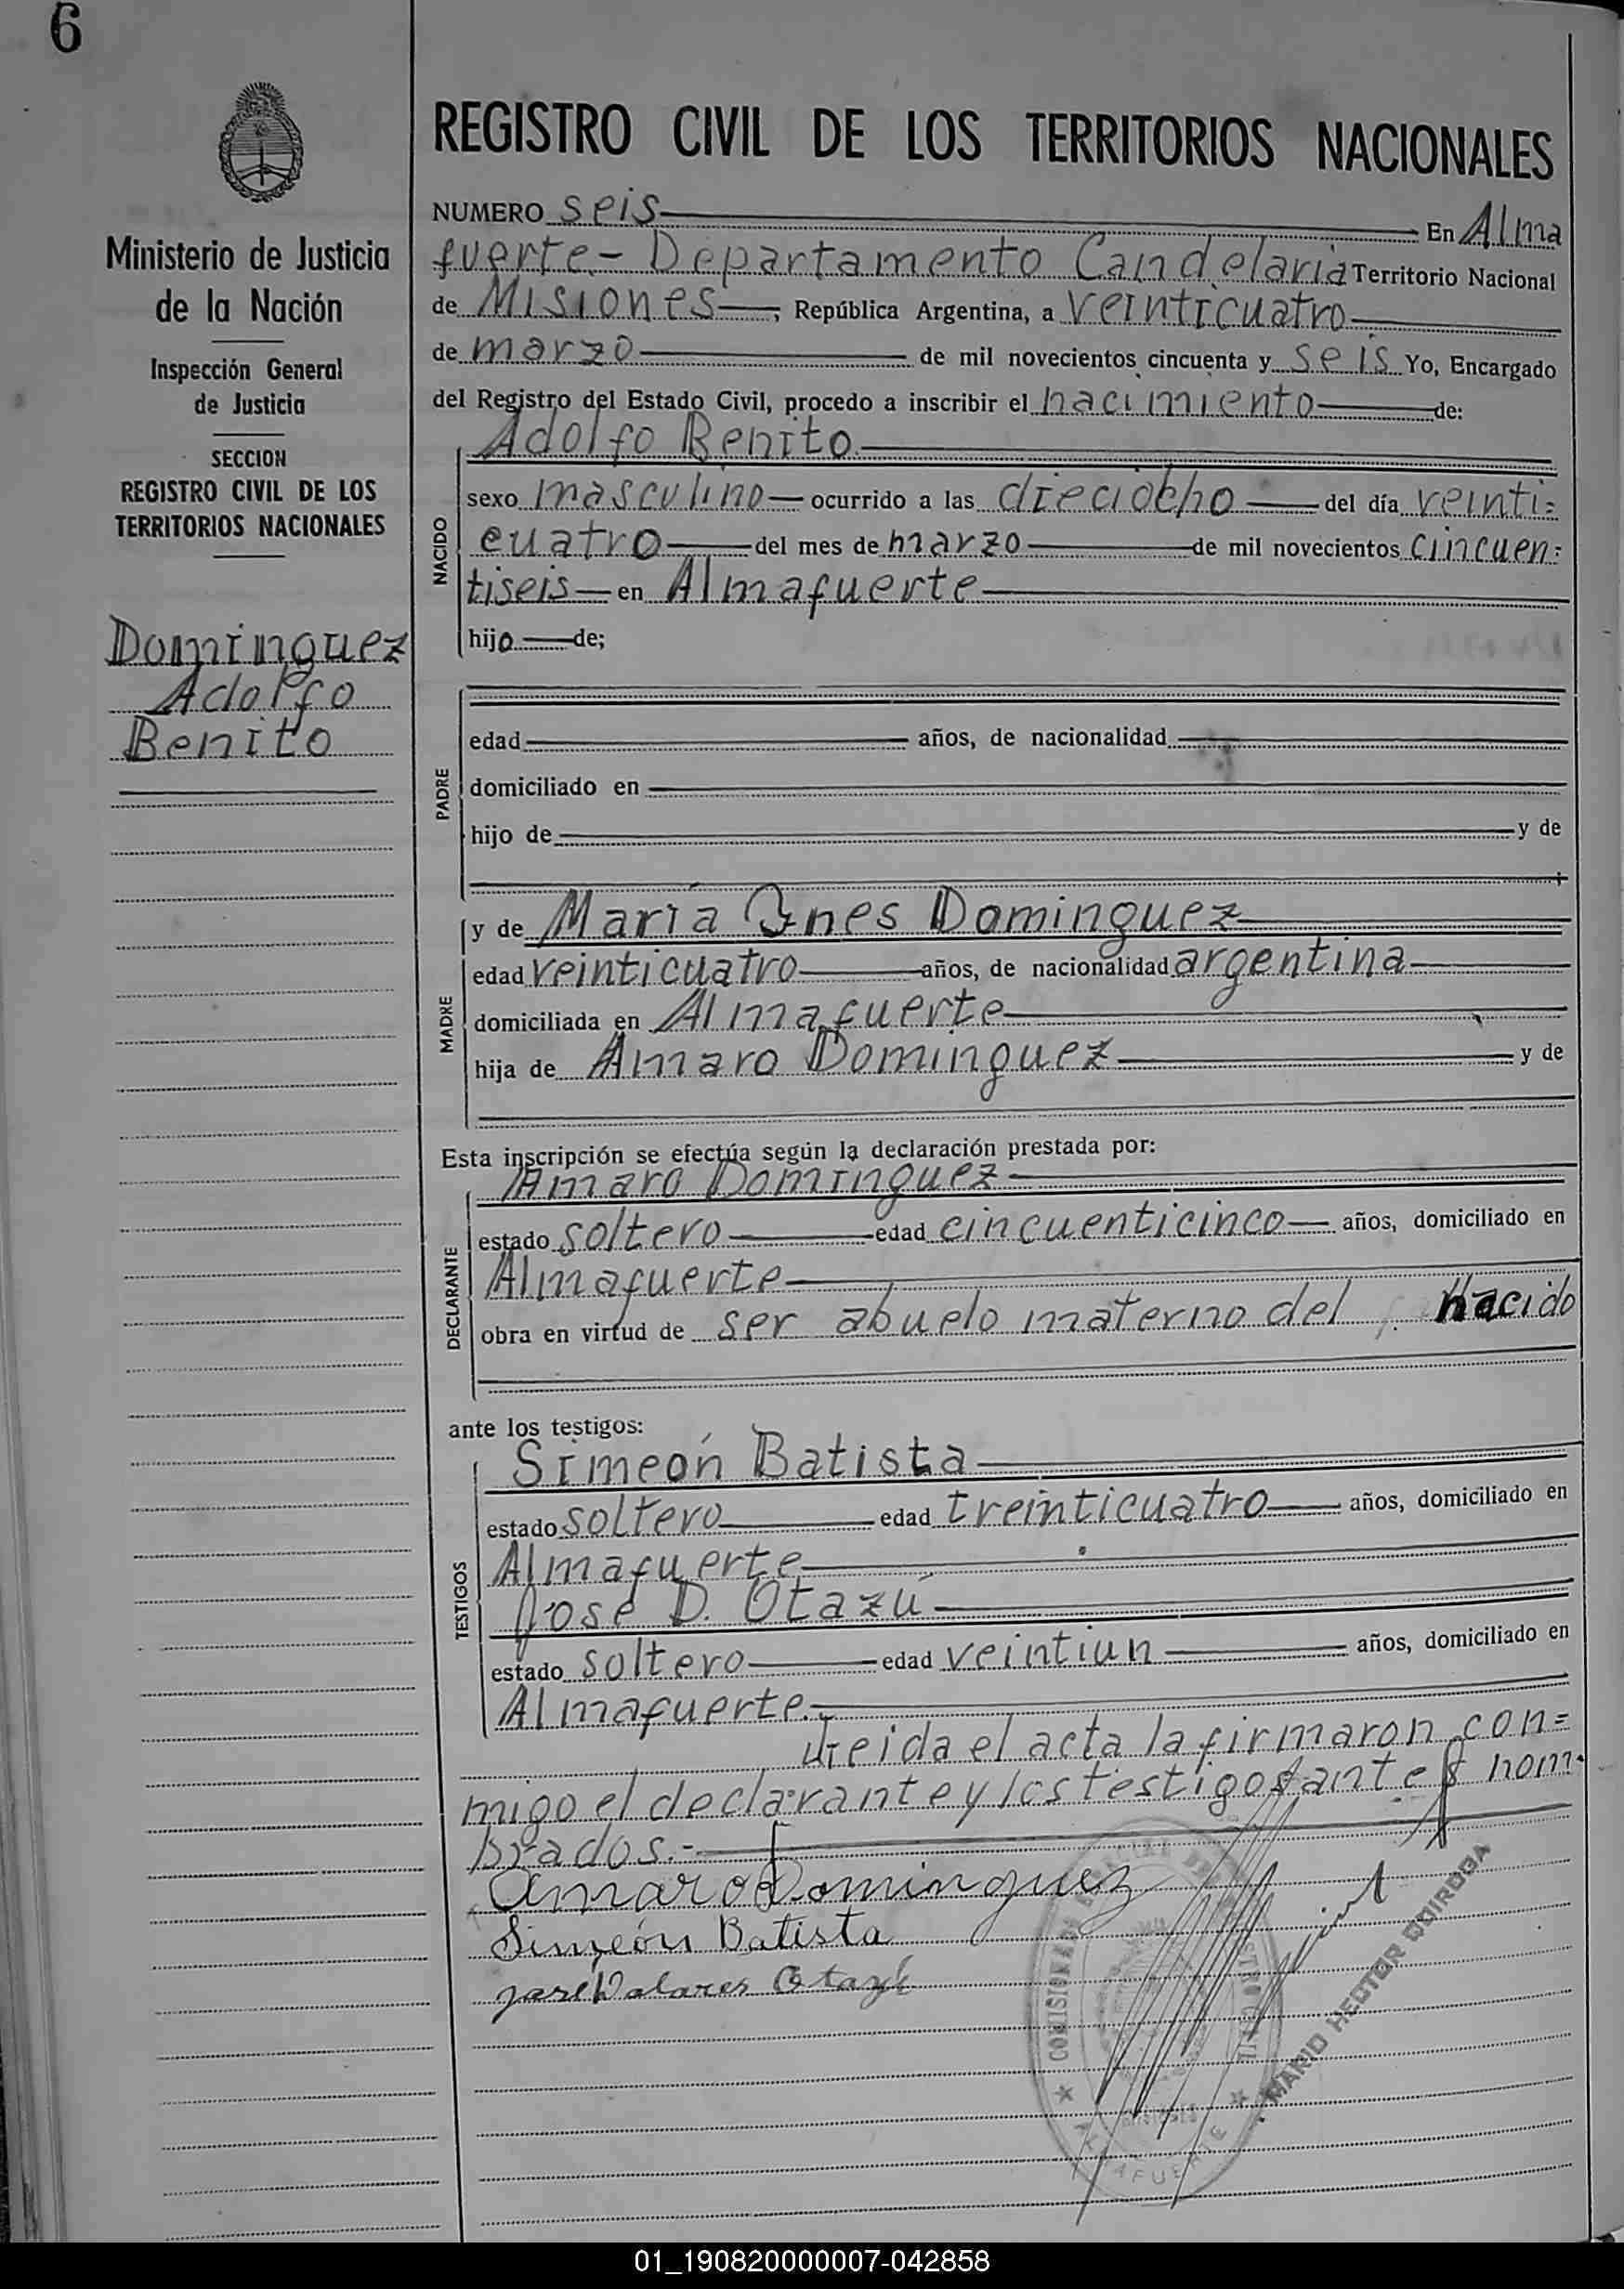 6
Ministerio de Justicia
de la Nación
Inspección General
de Justicia
SECCION
REGISTRO CIVIL DE LOS
TERRITORIOS NACIONALES
Dominguez
Adolfo
Benito
REGISTRO CIVIL DE LOS TERRITORIOS NACIONALES
NUMERO seis En Alma
fuerte.- Departamento Candelaria Territorio Nacional
de Misiones, República Argentina, a veinticuatro
de marzo de mil novecientos cincuenta y seis Yo, Encargado
del Registro del Estado Civil, procedo a inscribir el nacimiento de:
NACIDO
Adolfo Benito
sexo masculino ocurrido a las dieciocho del día veinti=
cuatro del mes de marzo de mil novecientos cincuen=
tiseis en Almafuerte
hijo de;
PADRE
edad años, de nacionalidad
domiciliado en
hijo de y de
MADRE
y de María Ines Dominguez
edad veinticuatro años, de nacionalidad argentina
domiciliada en Almafuerte
hija de Amaro Dominguez y de
Esta inscripción se efectúa según la declaración prestada por:
DECLARANTE
Amaro Dominguez
estado soltero edad cincuenticinco años, domiciliado en
Almafuerte
obra en virtud de ser abuelo materno del nacido
ante los testigos:
TESTIGOS
Simeón Batista
estado soltero edad treinticuatro años, domiciliado en
Almafuerte
José D. Otazú
estado soltero edad veintiun años, domiciliado en
Almafuerte.-
Leida el acta la firmaron con=
migo el declarante y los testigos antes nom-
brados.-
Amaro Dominguez
Simeón Batista
José Dolores Otazú
REGISTRO CIVIL
ALMAFUERTE
MARIO HECTOR QUIROGA
01_190820000007-042858